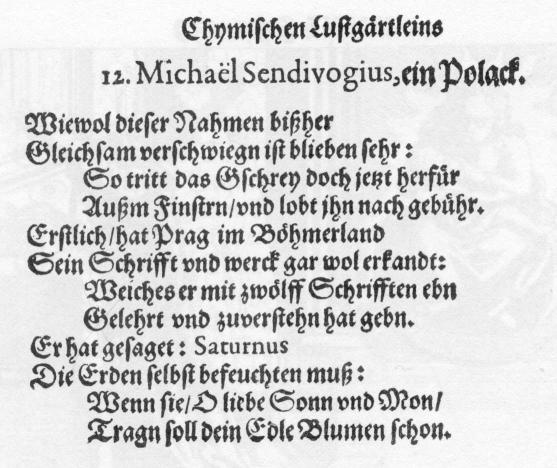 Chymischen Lustgärtleins
12. Michaël Sendivogius, ein Polack.
Wiewol dieser Nahmen bißher
Gleichsam verschwiegn ist blieben sehr:
So tritt das Gschrey doch jetzt herfür
Außm Finstrn/vnd lobt jhn nach gebühr.
Erstlich/hat Prag im Böhmerland
Sein Schrifft vnd werck gar wol erkandt:
Welches er mit zwölff Schrifften ebn
Gelehrt vnd zuverstehn hat gebn.
Er hat gesaget: Saturnus
Die Erden selbst befeuchten muß:
Wenn sie/O liebe Sonn vnd Mon/
Tragn soll dein Edle Blumen schon.